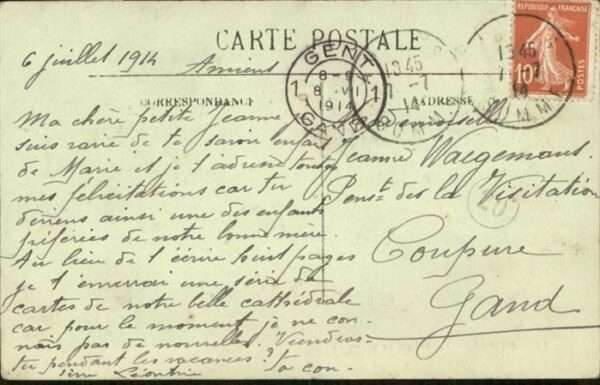 CARTE POSTALE
6 juillet 1914
Amiens
CORRESPONDANCE
ADRESSE
REPUBLIQUE FRANÇAISE
10
POSTES
GENT
1 1
8
1914
GAND
13 45
7-7
14
SOMME
13 45
14
Ma chère petite Jeanne, je
suis ravie de te savoir enfant
de Marie et je t'adresse toutes
mes félicitations car tu
deviens ainsi une des enfants
préférées de notre bonne mère.
Au lieu de t'écrire huit pages
je t'enverrai une série de
cartes de notre belle cathédrale
car pour le moment je ne con-
nais pas de nouvelles. Viendras-
tu pendant les vacances? ta con-
Léontine
Mademoiselle
Jeanne Waegemans
Pens.t des la Visitation
Coupure
Gand